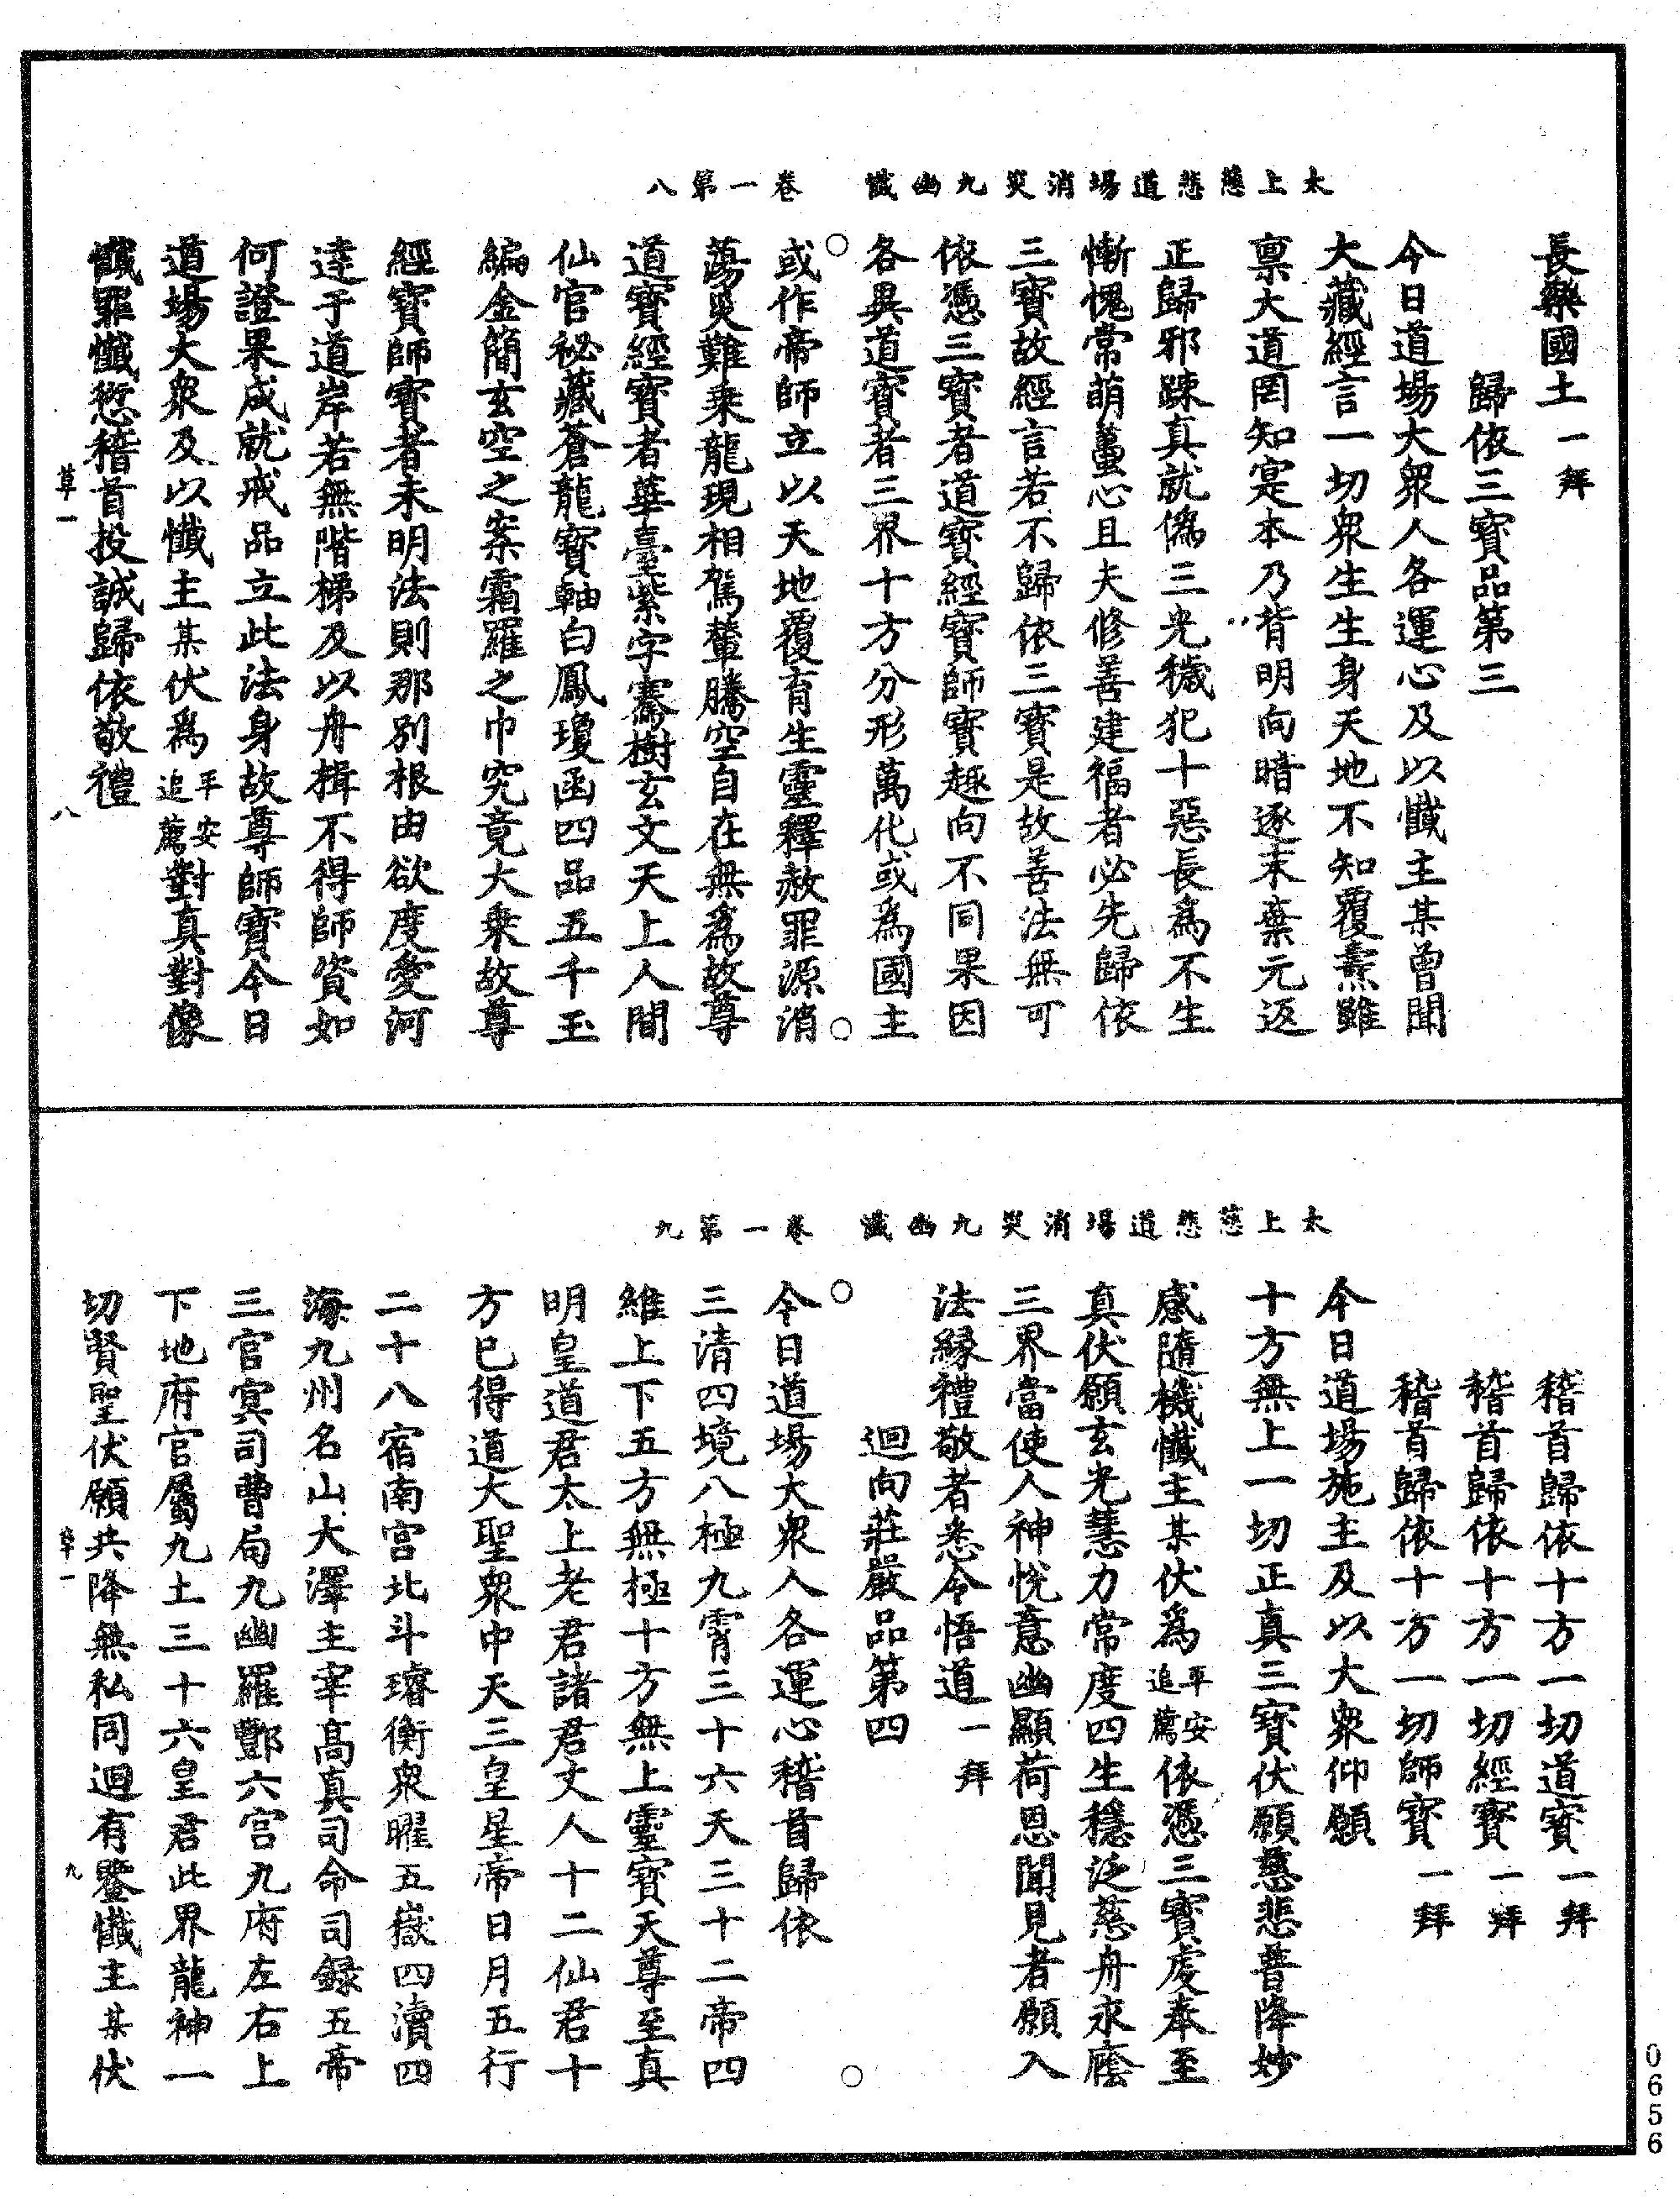 太上慈悲道場消災九幽懺　卷一第八
長樂國土一拜
歸依三寶品第三
今日道場大衆人各運心及以懺主某曾聞
大藏經言一切衆生生身天地不知覆燾雖
禀大道罔知寔本乃背明向暗逐末棄元返
正歸邪踈真就僞三光穢犯十惡長爲不生
慚愧常萌蠆心且夫修善建福者必先歸依
三寶故經言若不歸依三寶是故善法無可
依憑三寶者道寶經寶師寶趣向不同果因
各異道寶者三界十方分形萬化或爲國主
或作帝師立以天地覆育生靈釋赦罪源消
蕩災難乘龍現相駕輦騰空自在無爲故尊
道寶經寶者華臺紫字騫樹玄文天上人間
仙官祕藏蒼龍寶軸白鳳瓊函四品五千玉
編金簡玄空之案霜羅之巾究竟大乘故尊
經寶師寶者未明法則那別根由欲度愛河
達于道岸若無階梯及以舟楫不得師資如
何證果成就戒品立此法身故尊師寶今日
道場大衆及以懺主某伏爲平安追薦對真對像
懺罪懺愆稽首投誠歸依敬禮
草一　八
太上慈悲道場消災九幽懺　卷一第九
稽首歸依十方一切道寶一拜
稽首歸依十方一切經寶一拜
稽首歸依十方一切師寶一拜
今日道場施主及以大衆仰願
十方無上一切正真三寶伏願慈悲普降妙
感隨機懺主某伏爲平安追薦依憑三寶虔奉至
真伏願玄光慧力常度四生穩泛慈舟永蔭
三界當使人神悅意幽顯荷恩聞見者願入
法緣禮敬者悉令悟道一拜
迴向莊嚴品第四
今日道場大衆人各運心稽首歸依
三清四境八極九霄三十六天三十二帝四
維上下五方無極十方無上靈寶天尊至真
明皇道君太上老君諸君丈人十二仙君十
方已得道大聖衆中天三皇星帝日月五行
二十八宿南宫北斗璿衡衆曜五嶽四瀆四
海九州名山大澤主宰高真司命司録五帝
三官冥司曹局九幽羅酆六宫九府左右上
下地府官屬九土三十六皇君此界龍神一
切賢聖伏願共降無私同迴有鑒懺主某伏
草一　九
0656